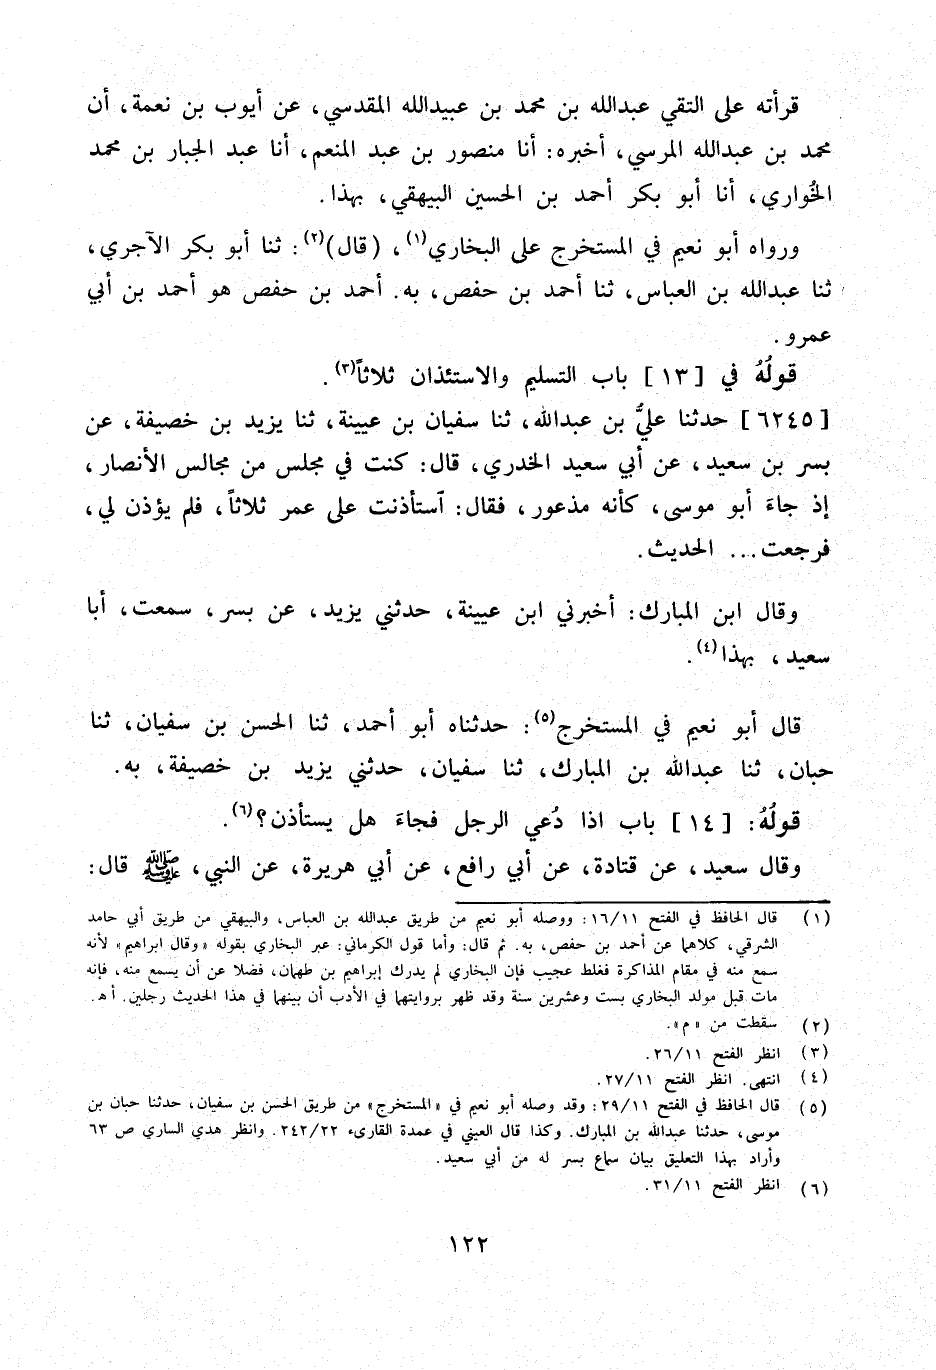 قرأته على التقي عبدالله بن محمد بن عبيدالله المقدسي، عن أيوب بن نعمة، أن
محمد بن عبدالله المرسي، أخبره: أنا منصور بن عبد المنعم، أنا عبد الجبار بن محمد
الخُواري، أنا أبو بكر أحمد بن الحسين البيهقي، بهذا.
ورواه أبو نعيم في المستخرج على البخاري(١)، (قال)(٢): ثنا أبو بكر الآجري،
ثنا عبدالله بن العباس، ثنا أحمد بن حفص، به. أحمد بن حفص هو أحمد بن أبي
عمرو.
قولُهُ في [١٣] باب التسليم والاستئذان ثلاثاً(٣).
[٦٢٤٥] حدثنا عليُّ بن عبدالله، ثنا سفيان بن عيينة، ثنا يزيد بن خصيفة، عن
بسر بن سعيد، عن أبي سعيد الخدري، قال: كنت في مجلس من مجالس الأنصار،
إذ جاءَ أبو موسى، كأنه مذعور، فقال: آستأذنت على عمر ثلاثاً، فلم يؤذن لي،
فرجعت... الحديث.
وقال ابن المبارك: أخبرني ابن عيينة، حدثني يزيد، عن بسر، سمعت، أبا
سعيد، بهذا(٤).
قال أبو نعيم في المستخرج(٥): حدثناه أبو أحمد، ثنا الحسن بن سفيان، ثنا
حبان، ثنا عبدالله بن المبارك، ثنا سفيان، حدثني يزيد بن خصيفة، به.
قولُهُ: [١٤] باب اذا دُعي الرجل فجاءَ هل يستأذن؟(٦).
وقال سعيد، عن قتادة، عن أبي رافع، عن أبي هريرة، عن النبي، ﷺ قال:
(١) قال الحافظ في الفتح ١٦/١١: ووصله أبو نعيم من طريق عبدالله بن العباس، والبيهقي من طريق أبي حامد
الشرقي، كلاهما عن أحمد بن حفص، به. ثم قال: وأما قول الكرماني: عبر البخاري بقوله «وقال ابراهيم» لأنه
سمع منه في مقام المذاكرة فغلط عجيب فإن البخاري لم يدرك إبراهيم بن طهمان، فضلا عن أن يسمع منه، فإنه
مات قبل مولد البخاري بست وعشرين سنة وقد ظهر بروايتهما في الأدب أن بينهما في هذا الحديث رجلين. أ هـ.
(٢) سقطت من «م».
(٣) انظر الفتح ٢٦/١١.
(٤) انتهى. انظر الفتح ٢٧/١١.
(٥) قال الحافظ في الفتح ٢٩/١١: وقد وصله أبو نعيم في «المستخرج» من طريق الحسن بن سفيان، حدثنا حبان بن
موسى، حدثنا عبدالله بن المبارك. وكذا قال العيني في عمدة القارىء ٢٤٢/٢٢. وانظر هدي الساري ص ٦٣
وأراد بهذا التعليق بيان سماع بسر له من أبي سعيد.
(٦) انظر الفتح ٣١/١١.
١٢٢